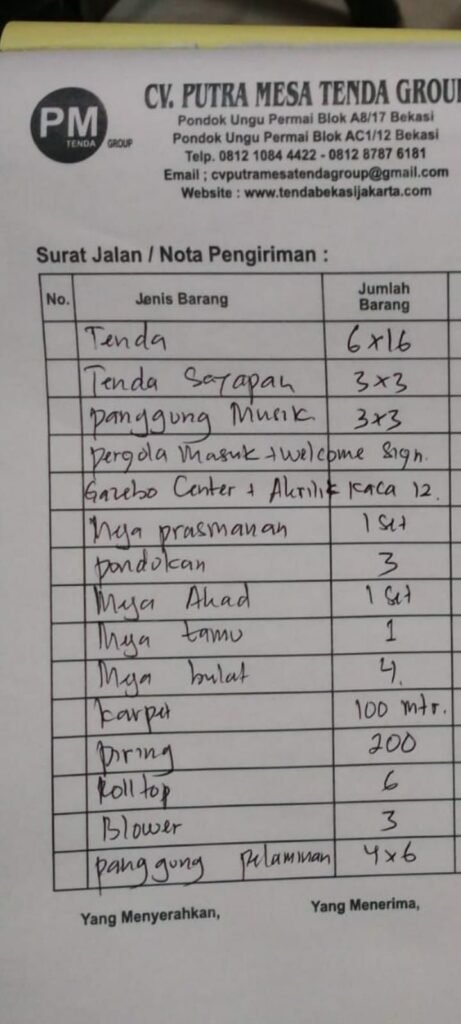 PM
TENDA GROUP
CV. PUTRA MESA TENDA GROUP
Pondok Ungu Permai Blok A8/17 Bekasi
Pondok Ungu Permai Blok AC1/12 Bekasi
Telp. 0812 1084 4422 - 0812 8787 6181
Email ; cvputramesatendagroup@gmail.com
Website : www.tendabekasijakarta.com
Surat Jalan / Nota Pengiriman :
No. Jenis Barang Jumlah Barang
Tenda 6x16
Tenda Sarapan 3x3
panggung Musik 3x3
pergola Masuk + welcome Sign.
Gazebo Center + Akrilik kaca 12.
Meja prasmanan 1 Set
pondokan 3
Meja Akad 1 Set
Meja tamu 1
Meja bulat 4.
karpet 100 mtr.
piring 200
Roll top 6
Blower 3
panggung pelaminan 4x6
Yang Menyerahkan, Yang Menerima,